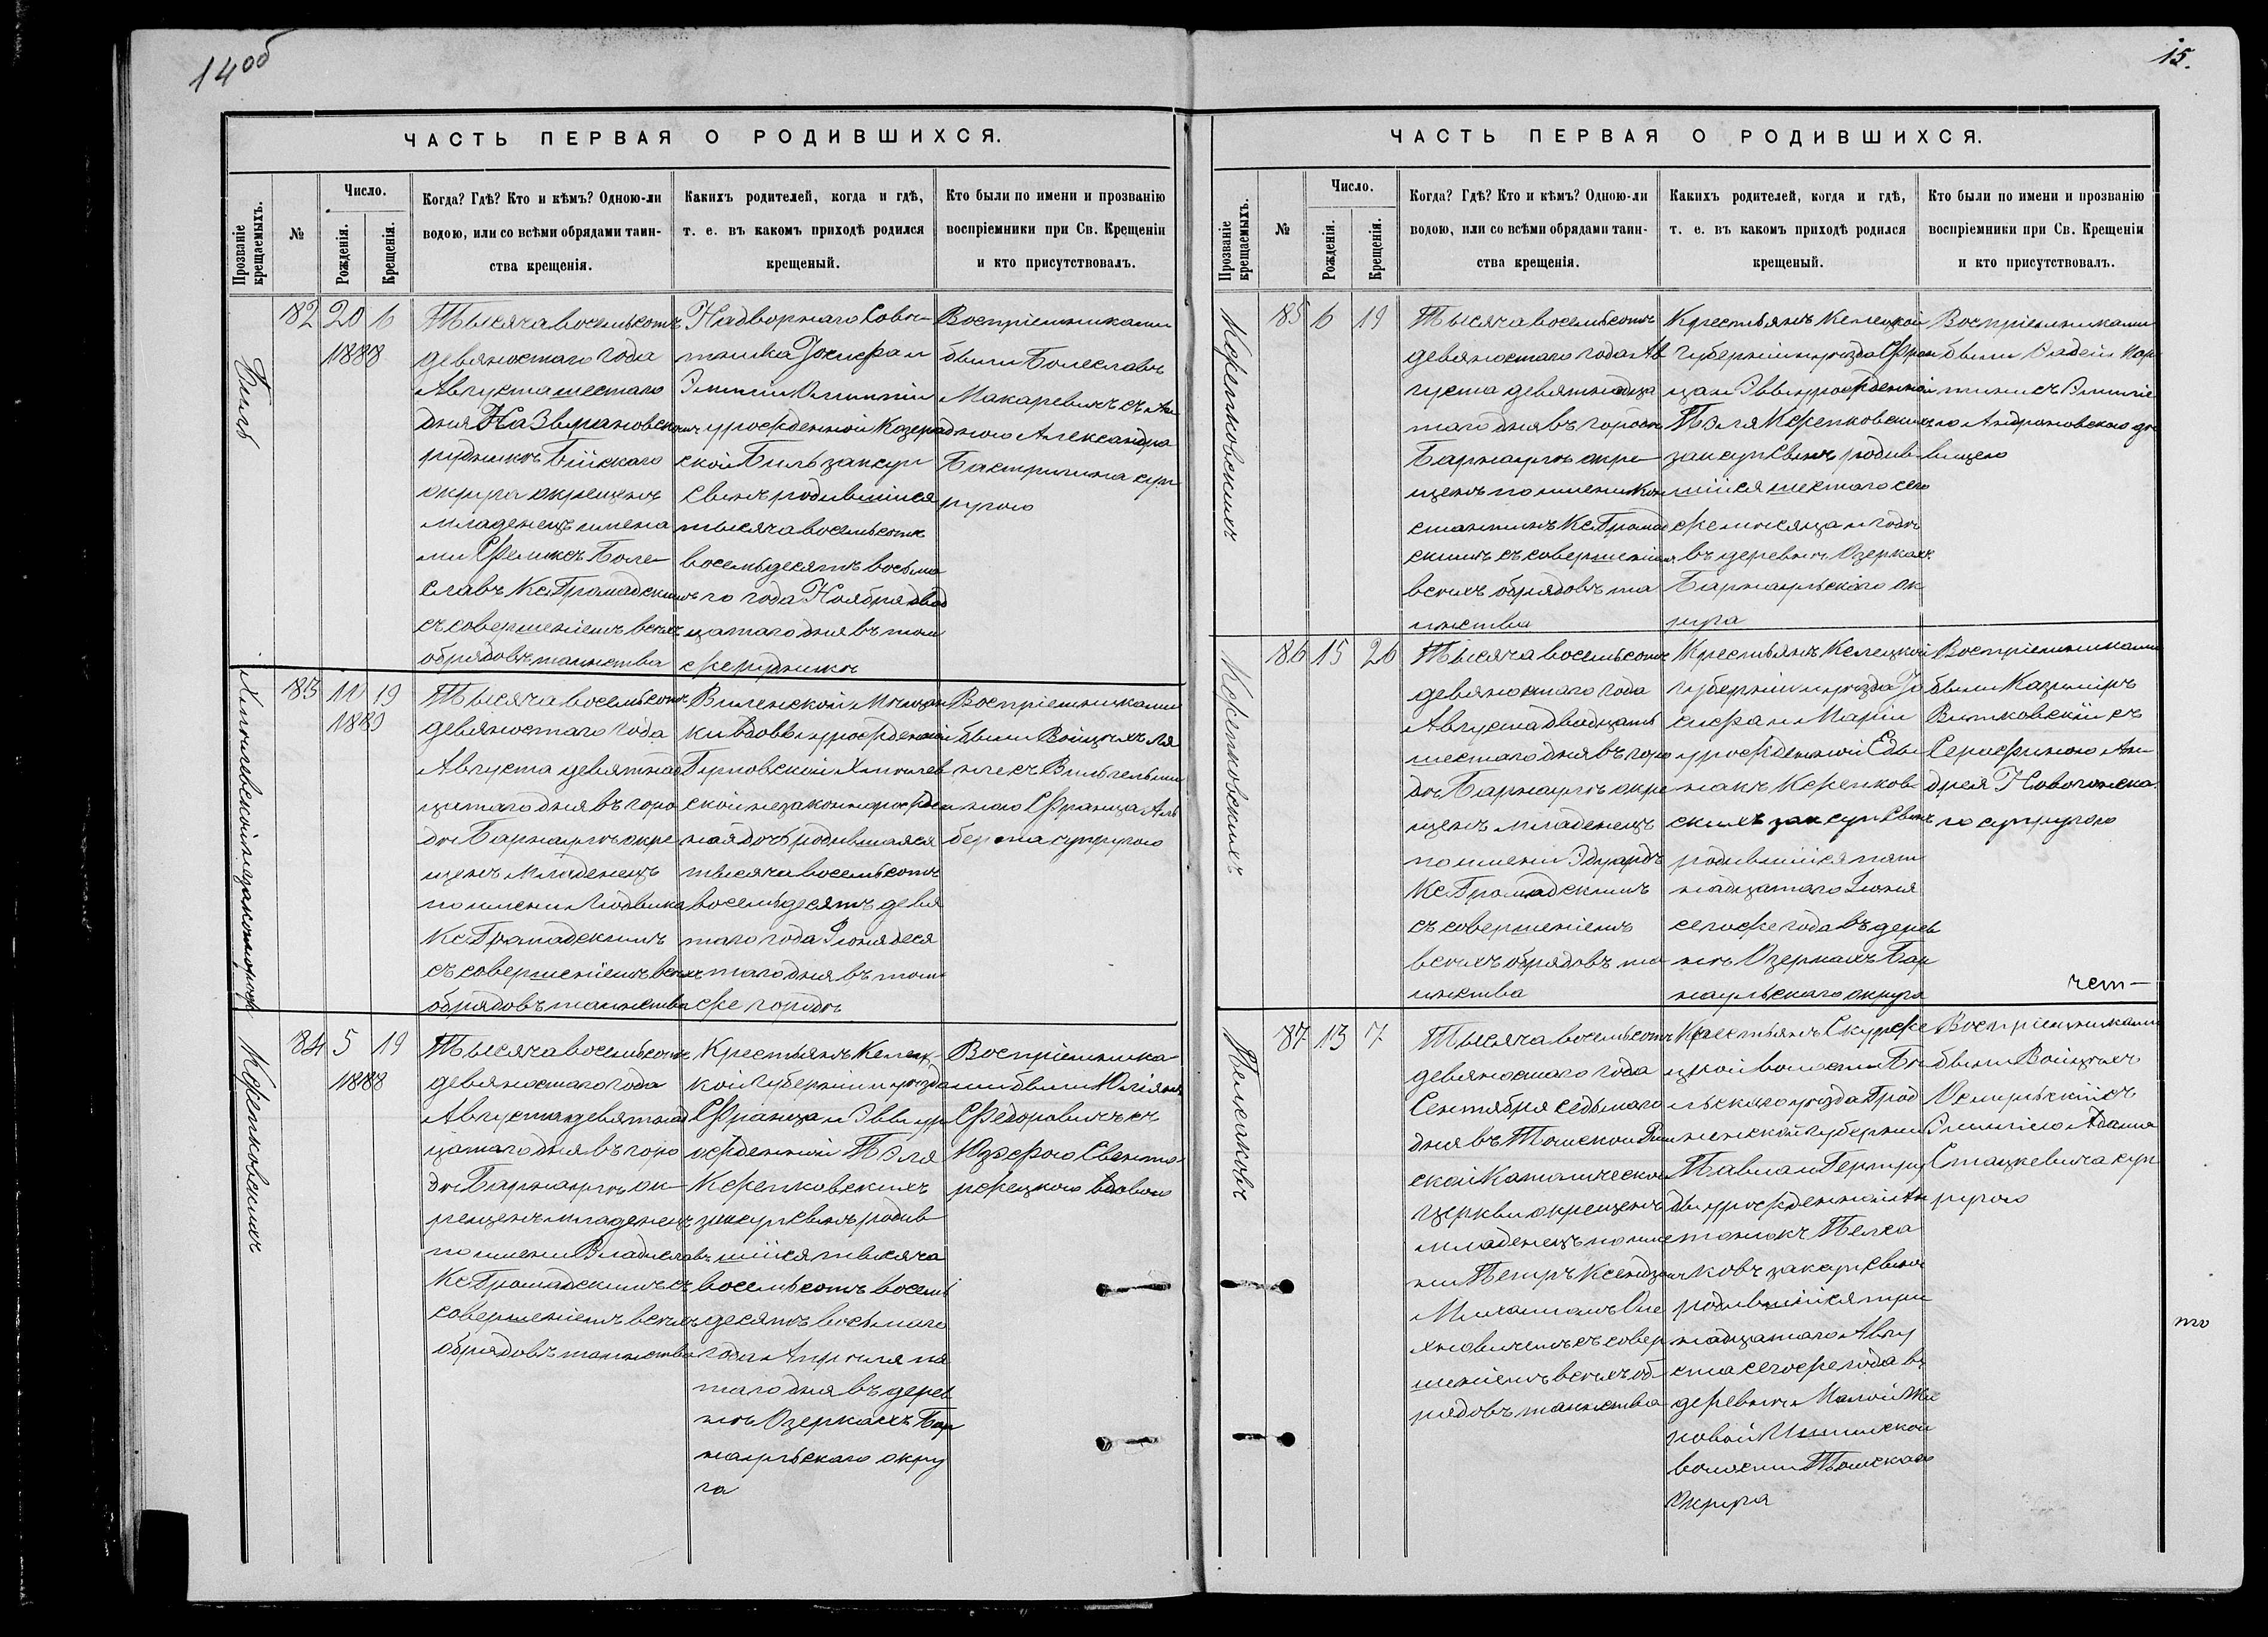 14 об
ЧАСТЬ ПЕРВАЯ О РОДИВШИХСЯ.
Прозваніе крещаемыхъ.
№
Число.
Рожденія.
Крещенія.
Когда? Гдѣ? Кто и кѣмъ? Одною-ли
водою, или со всѣми обрядами таин-
ства крещенія.
Какихъ родителей, когда и гдѣ,
т. е. въ какомъ приходѣ родился
крещеный.
Кто были по имени и прозванію
воспріемники при Св. Крещеніи
и кто присутствовалъ.
Биль
182 20 6
1888
Тысяча восемьсотъ
девяностаго года
Августа шестаго
дня На Зыряновскомъ
рудникѣ Бійскаго
округа окрещенъ
младенецъ имена
ми Феликсъ Боле
славъ Кс. Громадскимъ
съ совершеніемъ всѣхъ
обрядовъ таинства
Надворнаго Совѣ
тника Іосифа и
Эмиліи
урожденной Козера
ской Биль закон супр
родившійся
тысяча восемьсотъ
восемьдесятъ восьма
го года Ноября двад
цатаго дня въ том
же рудникѣ
Воспріемниками
были Болеславъ
Макаревичъ съ Ан
ною Александра
Бастрыгина суп
ругою
Хмѣлевской незаконнорож
183 11 19
1889
Тысяча восемьсотъ
девяностаго года
Августа девятнад
цатаго дня въ горо
дѣ Барнаулѣ окре
щенъ младенецъ
по имени Людвика
Кс. Громадскимъ
съ совершеніемъ всѣхъ
обрядовъ таинства
Виленской Мѣщан
ки вдовы урожденной
Хмѣлев
ской незаконнорожден
ная дочь родившаяся
тысяча восемьсотъ
восемьдесятъ девя
таго года Іюня деся
таго дня въ том
же городѣ
Воспріемниками
были Войцѣхъ Ля
съ Вильгельми
ною Франца Аль
берта супругою
Жепковскихъ
184 5 19
1888
Тысяча восемьсотъ
девяностаго года
Августа девятнад
цатаго дня въ горо
дѣ Барнаулѣ ок
рещенъ младенецъ
по имени Владиславъ
Кс. Громадскимъ съ
совершеніемъ всѣхъ
обрядовъ таинства
Крестьянъ Келец
кой губерніи и уѣзда
Франца и Эвы ур
ожденной Пэля
Жепковскихъ
закон супр родив
шійся тысяча
восемьсотъ восемь
десятъ восьмаго
года Апрѣля пя
таго дня въ дерев
нѣ Озеркахъ Бар
наульскаго окру
га
Воспріемника
ми были Юліянъ
Федоровичъ съ
Юзефою Свенто
ржецкою вдовою
15.
ЧАСТЬ ПЕРВАЯ О РОДИВШИХСЯ.
Прозваніе крещаемыхъ.
№
Число.
Рожденія.
Крещенія.
Когда? Гдѣ? Кто и кѣмъ? Одною-ли
водою, или со всѣми обрядами таин-
ства крещенія.
Какихъ родителей, когда и гдѣ,
т. е. въ какомъ приходѣ родился
крещеный.
Кто были по имени и прозванію
воспріемники при Св. Крещеніи
и кто присутствовалъ.
Жепковскихъ
185 6 19
Тысяча восемьсотъ
девяностаго года Ав
густа девятнадца
таго дня въ городѣ
Барнаулѣ окре
щенъ по имени Кон
стантинъ Кс. Громад
скимъ съ совершеніемъ
всѣхъ обрядовъ та
инства
Крестьянъ Келецкой
губерніи и уѣзда Фран
ца и Эвы урожденной
Пэля Жепковскихъ
закон супр родив
шійся шестаго сего
же мѣсяца и года
въ деревнѣ Озеркахъ
Барнаульскаго ок
руга
Воспріемниками
были
съ Эмилі
ею Андроновскою
вицею
Жепковскихъ
186 15 26
Тысяча восемьсотъ
девяностаго года
Августа двадцать
шестаго дня въ горо
дѣ Барнаулѣ окре
щенъ младенецъ
по имени Эдуардъ
Кс. Громадскимъ
съ совершеніемъ
всѣхъ обрядовъ та
инства
Крестьянъ Келецкой
губерніи и уѣзда Іо
сифа и Маріи
урожденной Еды
накъ Жепков
скихъ зак супр
родившійся пят
надцатаго Іюня
сего же года въ дерев
нѣ Озеркахъ Бар
наульскаго округа
Воспріемниками
были Казиміръ
Витковскій съ
Серафиною Ан
дрея
го супругою
чет-
Пелкаковъ
187 13 7
Тысяча восемьсотъ
девяностаго года
Сентября седьмаго
дня въ Томской Рим
ской Католической
церкви окрещенъ
младенецъ по име
ни Петръ Ксендзомъ
Михаиломъ Оле
хновичемъ съ совер
шеніемъ всѣхъ об
рядовъ таинства
Крестьянъ
цкой волости Бѣ
льскаго уѣзда Грод
ненской губерніи
Павла и Гертру
ды урожденной Ан
тонюкъ Пелка
ковъ закон супр
родившійся три
надцатаго Авгу
ста сего же года въ
деревнѣ Малой
ровой Ишимской
волости Томскаго
Округа
Воспріемниками
были Войцѣхъ
съ
Эмиліею Адама
Стацкевича суп
ругою
то